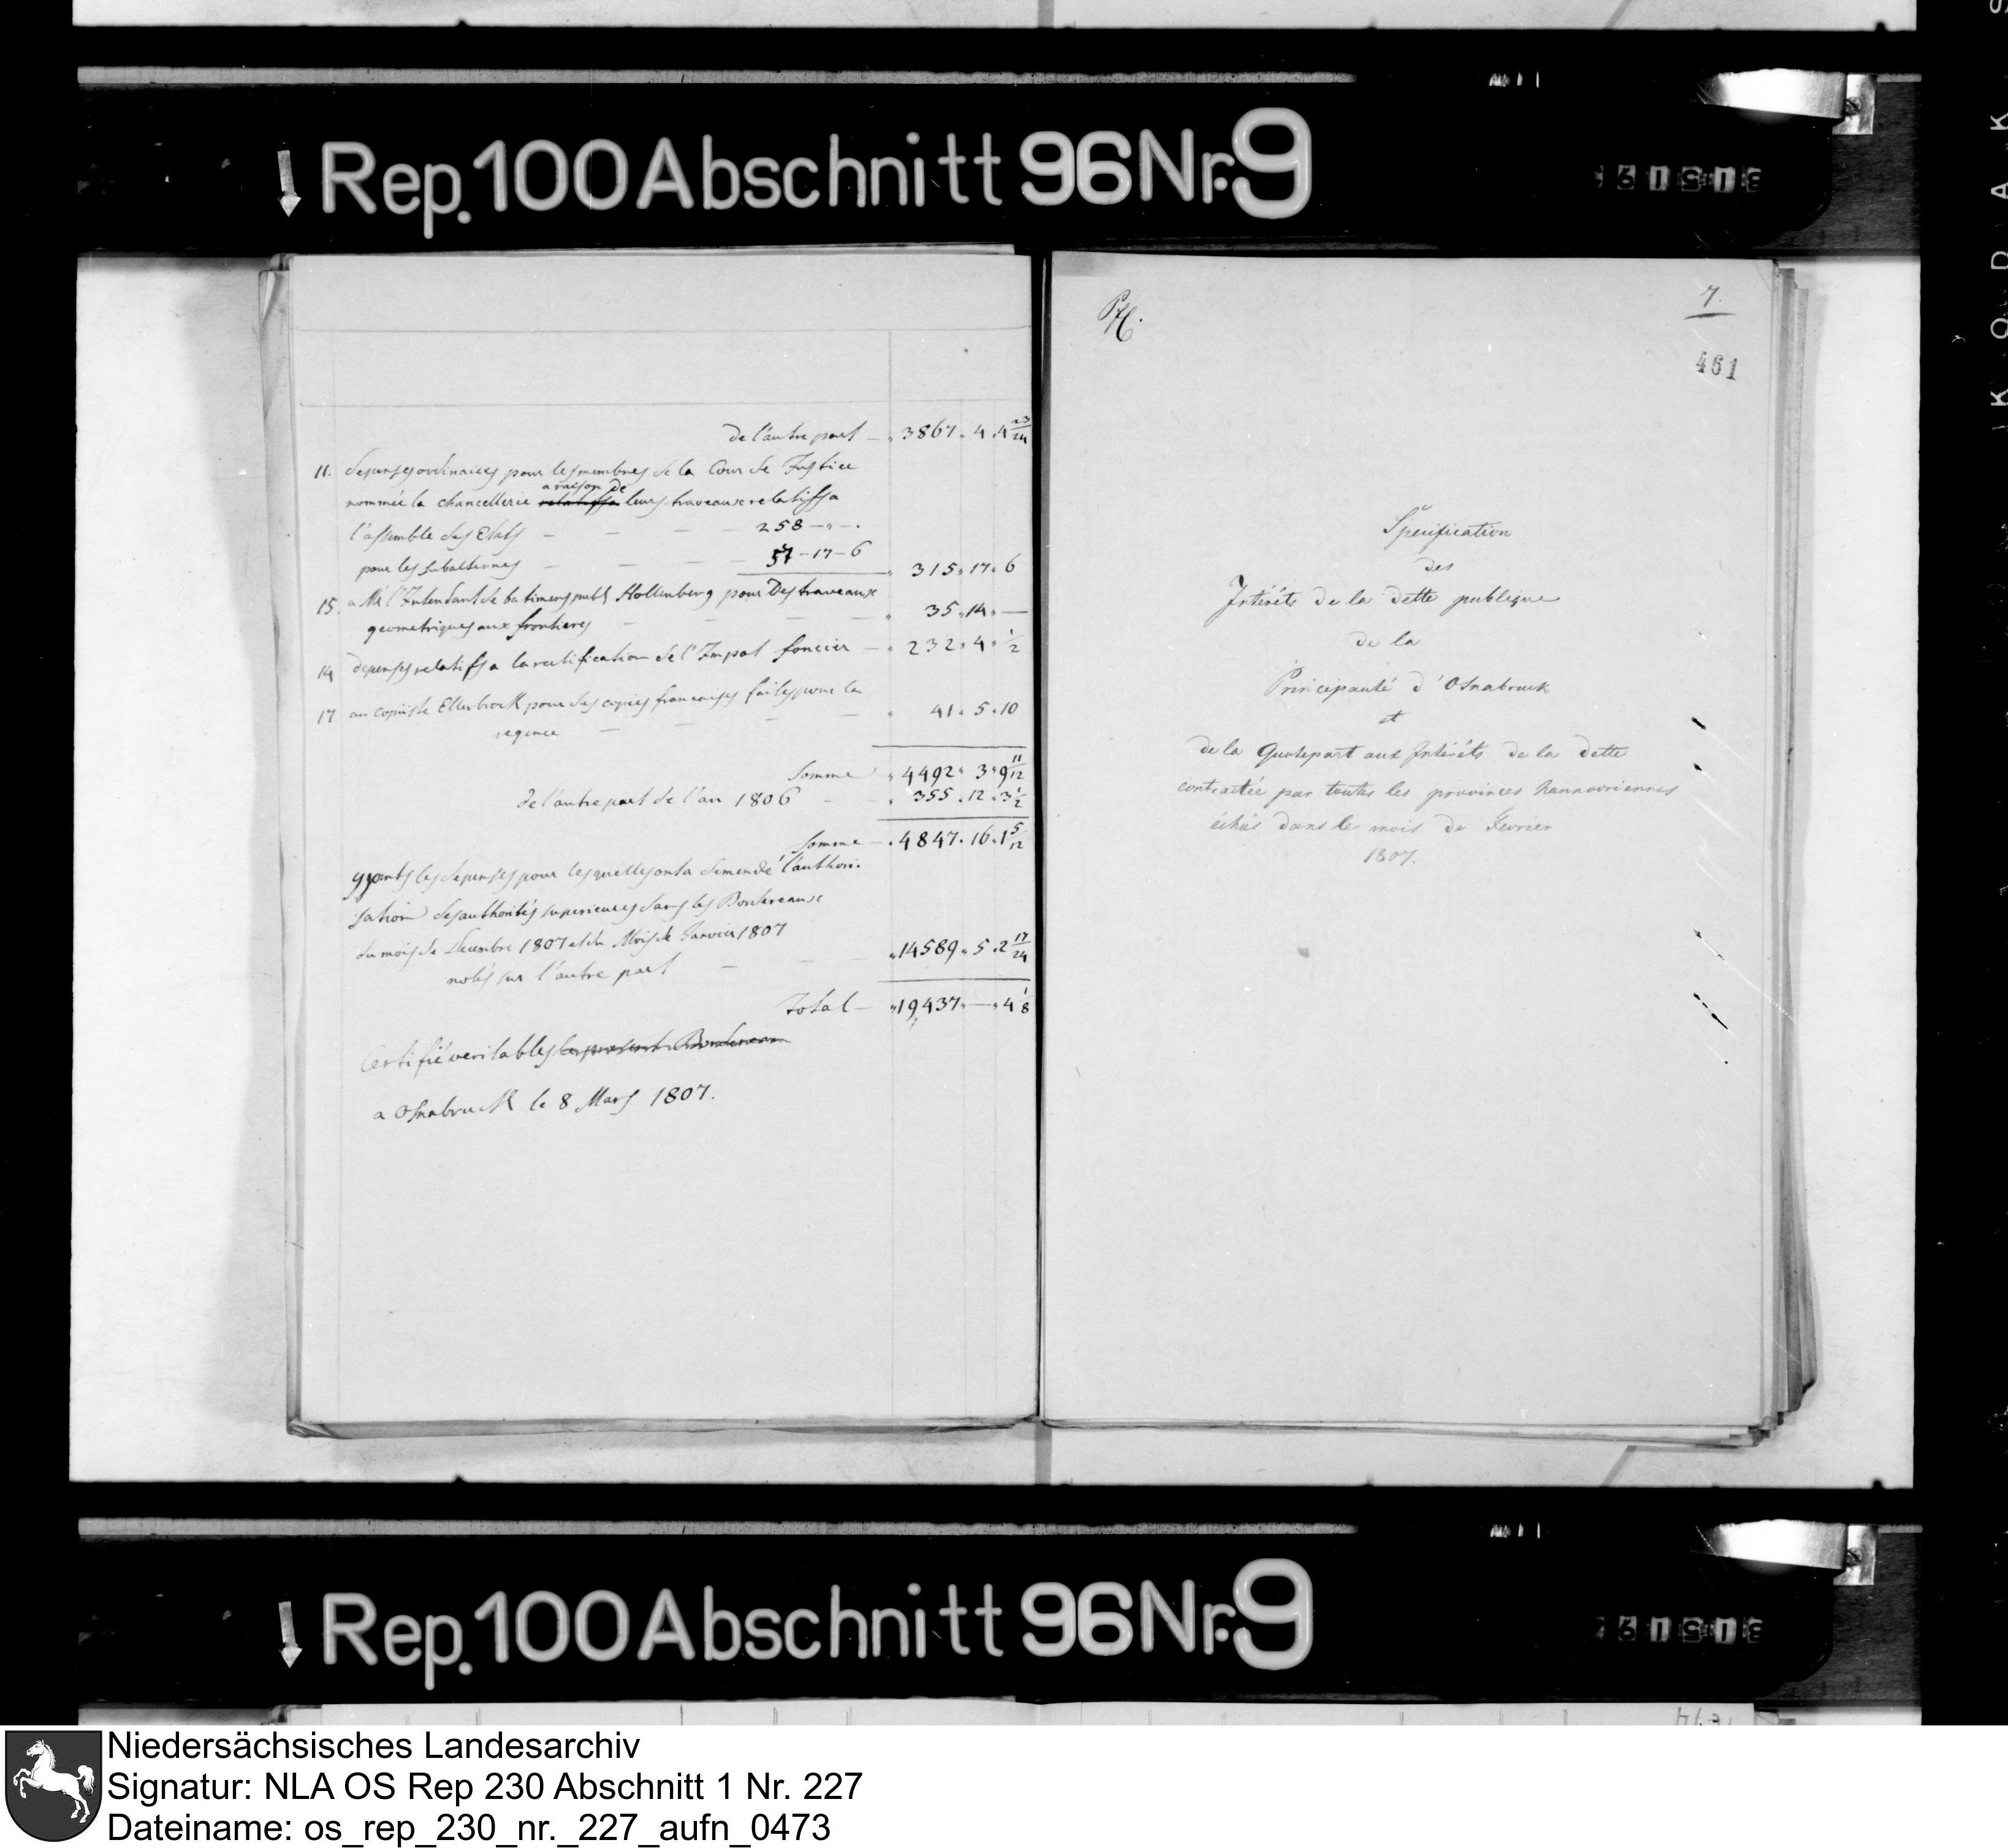 Rep. 100 Abschnitt 96 Nr. 9
de l'autre part — 3867. 4. 4 23/24
11. depenses ordinaires pour les membres de la Cour de Justice
nommée la chancellerie relatifs a a raison de leurs traveaux relatifs a
l'assemble des Etats — — — 258 — " — .
pour les subalternes — — — 57 - 17 - 6 " 315. 17. 6
15. a Mr l'Intendant de batimens publ. Hollenberg pour Des traveaux
geometriques aux frontieres — — — " 35. 14. —
14 depenses relatifs a la rectification de l'Impot foncier — " 232. 4. 1/2
17 au copiiste Ellerbrock pour des copies francaises faites pour la
regence — — — — " 41. 5. 10
Somme " 4492. 3. 9 11/12
de l'autre part de l'an 1806 — " 355. 12. 3 1/2
Somme — . 4847. 16. 1 5/12
les depenses pour lesquelles on a demendé l'authori-
sation des authorités superieures dans les Bordereaux
du mois de Decembre 1807 et du Mois de Janvier 1807
notés sur l'autre part — — — " 14589. 5. 2 17/24
Total — " 19,437. — . 4 1/8
Certifié veritables le present Bordereau
a Osnabruck le 8 Mars 1807.
7.
461
Specification
des
Intérêts de la dette publique
de la
Principauté d'Osnabruck
et
de la Quotepart aux Intérêts de la dette
contractée par toutes les provinces hannovriennes
échus dans le mois de Fevrier
1807.
KODAK
Rep. 100 Abschnitt 96 Nr. 9
Niedersächsisches Landesarchiv
Signatur: NLA OS Rep 230 Abschnitt 1 Nr. 227
Dateiname: os_rep_230_nr._227_aufn_0473